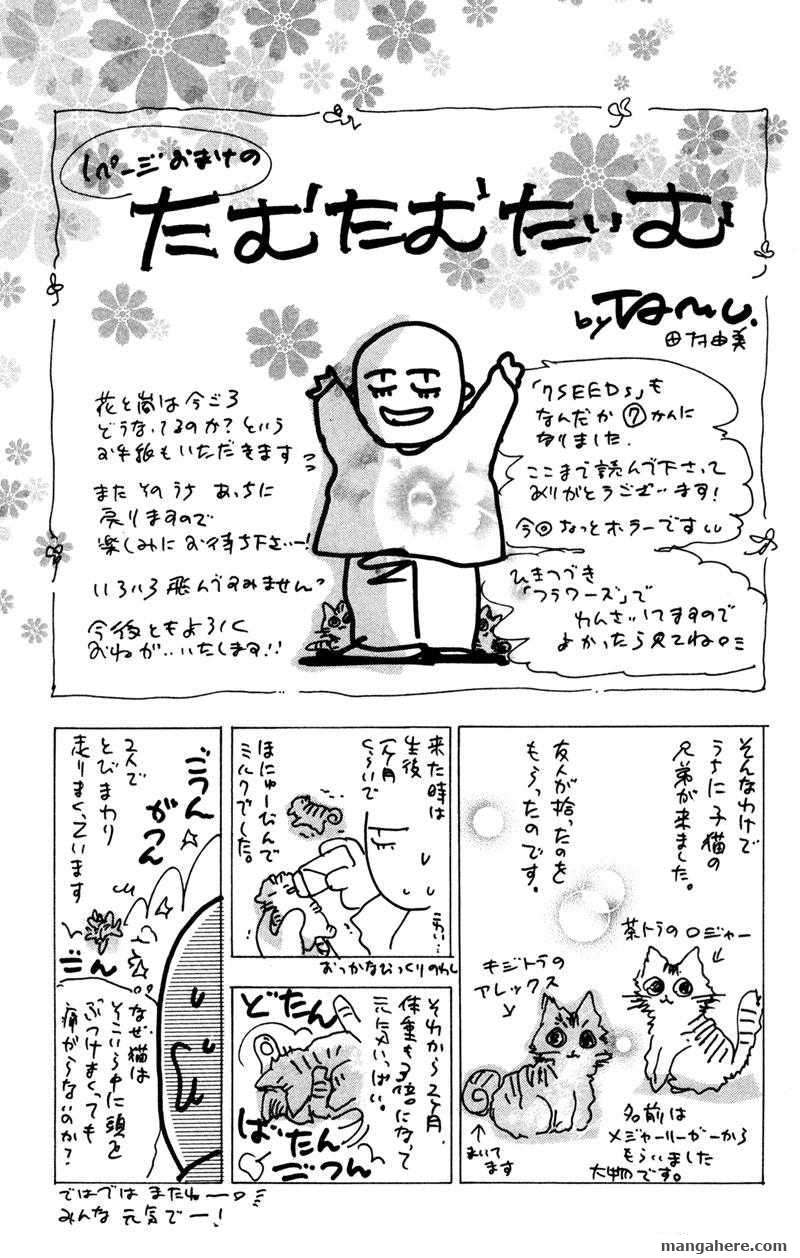 1ページおまけの
たむたむたいむ
by Tamu.
田村由美
「7SEEDS」も
なんだか⑦かんに
なりました.
ここまで読んで下さって
ありがとうございます!
今回ちょっとホラーです
ひきつづき
「フラワーズ」で
れんさいしてますので
よかったら見てね
花と嵐は今ごろ
どうなってるのか?という
お手紙もいただきます
また そのうち あっちに
戻りますので
楽しみに お待ち下さいー!
いろいろ飛んですみません
今後ともよろしく
おねがいいたします!!
そんなわけで
うちに子猫の
兄弟が来ました。
友人が拾ったのを
もらったのです。
茶トラのロジャー
キジトラの
アレックス
まいてます
名前は
メジャーリーガーから
もらいました
大物です。
来た時は
生後
1ヶ月
くらいで
ほにゅーびんで
ミルクでした。
うわ…
おっかなびっくりのわし
それから2ヶ月、
体重も3倍になって
元気いっぱい。
どたん
ばたん
ごつん
ごうん
がつん
2人で
とびまわり
走りまくっています
ごん
なぜ猫は
そこいら中に頭を
ぶつけまくっても
痛がらないのか?
ではでは またねー
みんな 元気でー!
mangahere.com